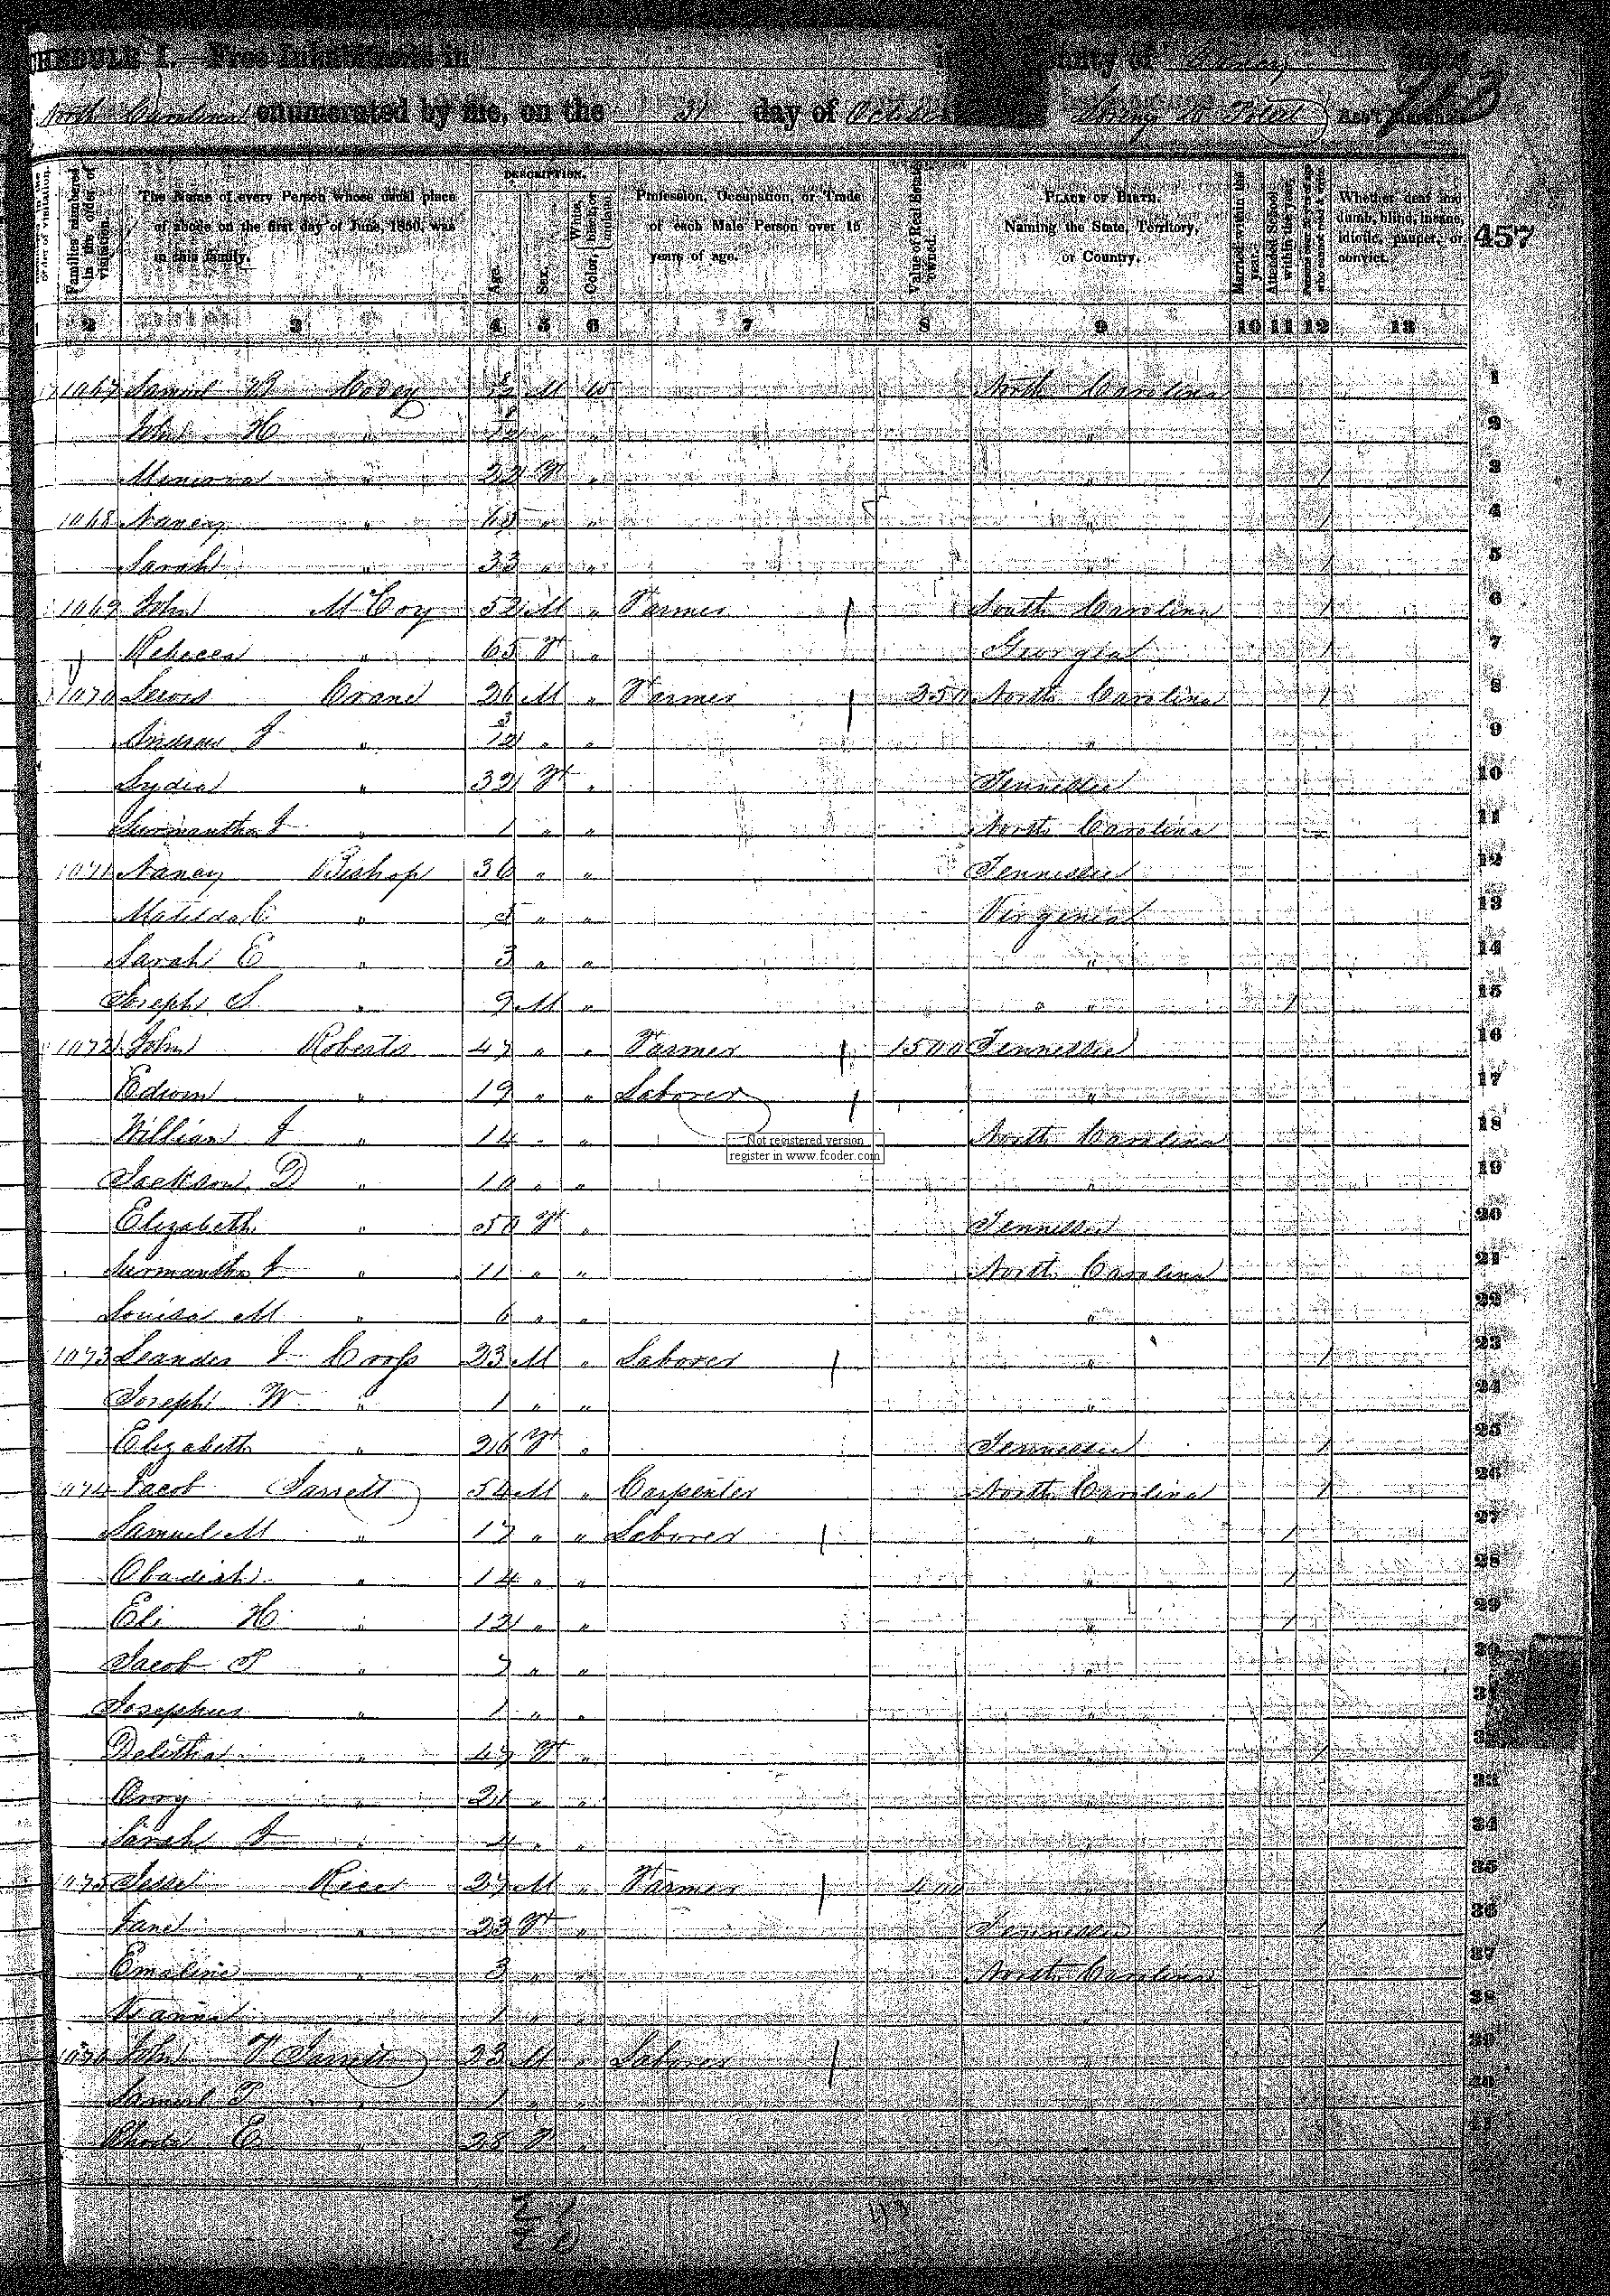 SCHEDULE I.—Free Inhabitants in in the County of Yancey State
North Carolina enumerated by me, on the 31 day of October Ass't Marshal.
457
Families numbered in the order of visitation.
The Name of every Person whose usual place of abode on the first day of June, 1850, was in this family.
DESCRIPTION.
Age.
Sex.
Color, White, black, or mulatto.
Profession, Occupation, or Trade of each Male Person over 15 years of age.
Value of Real Estate owned.
PLACE OF BIRTH. Naming the State, Territory, or Country.
Married within the year.
Attended School within the year.
Persons over 20 y'rs of age who cannot read & write.
Whether deaf and dumb, blind, insane, idiotic, pauper, or convict.
1 2 3 4 5 6 7 8 9 10 11 12 13
1067 Samuel B M W North Carolina 1
John H " " " " 2
Minerva " 22 F " " / 3
1068 Nancy " 65 " " " / 4
Sarah " 33 " " " / 5
1069 John McCoy 52 M " Farmer South Carolina / 6
Rebecca " 65 F " Georgia / 7
1070 Lewis Crane 26 M " Farmer 350 North Carolina / 8
Andrew J " 3/12 " " " 9
Lydia " 32 F " Tennessee 10
Surmantha J " 1 " " North Carolina 11
1071 Nancy Bishop 36 " " Tennessee 12
Matilda C " 5 " " Virginia 13
Sarah E " 3 " " " 14
Joseph S " 9 M " " / 15
1072 John Roberts 47 " " Farmer 1500 Tennessee 16
Edwin " 19 " " Laborer " 17
William J " 14 " " North Carolina 18
Not registered version
register in www.fcoder.com
Jackson D " 10 " " " 19
Elizabeth " 50 F " Tennessee 20
Surmantha J " 11 " " North Carolina 21
Louisa M " 6 " " " 22
1073 Leander J 23 M " Laborer " / 23
Joseph W " 1 " " " 24
Elizabeth " 26 F " Tennessee / 25
1074 Jacob Jarrett 54 M " Carpenter North Carolina / 26
Samuel M " 17 " " Laborer " / 27
Obadiah " 14 " " " / 28
Eli H " 12 " " " / 29
Jacob P " 7 " " " 30
Josephus " 1 " " " 31
Delitha " 47 F " " / 32
" 21 " " " 33
Sarah J " 4 " " 34
1075 Jesse Rice 27 M " Farmer 400 " 35
Jane " 23 F " Tennessee / 36
Emaline " 3 " " North Carolina 37
" 1 " 38
1076 John Jarrett 23 M " Laborer 39
Samuel P " 1 " 40
E " 28 F 41